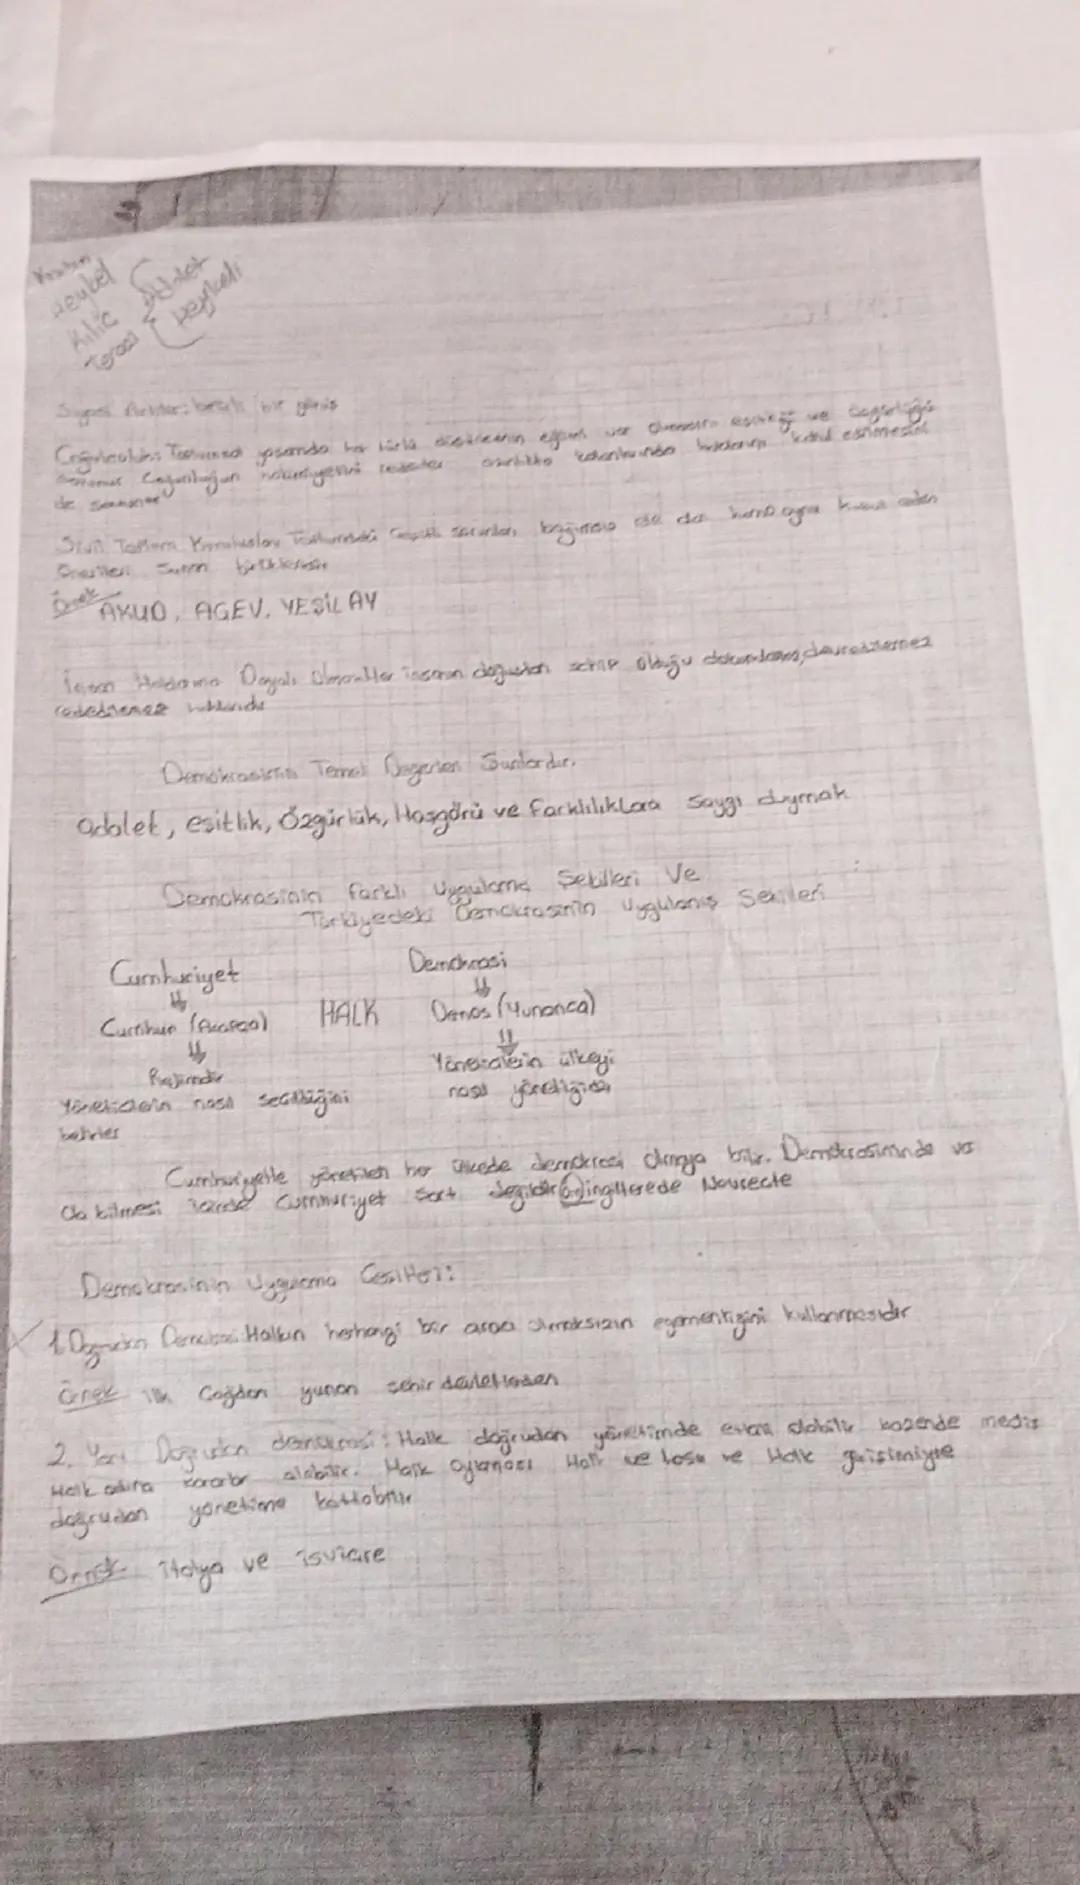 Kılıç
Siyasi Partiler: belirli bir görüş
Çoğulculuk: Toplumsal yaşamda her türlü eğilimin var olmasını eşitliği ve özgürlüğü
Çoğunluğun hakimiyetini azınlıkta kalanlarında haklarının kabul edilmesini
de
Sivil Toplum Kuruluşları Toplumdaki çeşitli sorunları bağımsız ele alan kamu
önerileri sunan birliklerdir
Örnek AKUD, AGEV, YEŞİLAY
İnsan Haklarına Dayalı Olmak: Her insanın doğuştan sahip olduğu dokunulamaz, devredilemez
haklarıdır
Demokrasinin Temel Değerleri Şunlardır.
adalet, eşitlik, Özgürlük, Hoşgörü ve farklılıklara saygı duymak
Demokrasinin farklı Uygulama Şekilleri Ve
Türkiyedeki Demokrasinin Uygulanış Şekilleri
Cumhuriyet Demokrasi
⇓ ⇓
Cumhur (Arapça) HALK Demos (Yunanca)
⇓ ⇓
Rejimdir Yöneticilerin ülkeyi
Yöneticilerin nasıl seçildiğini nasıl yönettiğidir
belirler
Cumhuriyetle yönetilen her ülkede demokrasi olmaya bilir. Demokrasininde va
Ola bilmesi içinde Cumhuriyet Sart değildir (ör) ingilterede Novrecte
Demokrasinin Uygulama Çeşitleri:
1. Doğrudan Demokrasi: Halkın herhangi bir aracı olmaksızın egemenliğini kullanmasıdır
Örnek ilk Çağdan yunan şehir devletlerden
2. Yarı Doğrudan demokrasi: Halk doğrudan yönetimde olabilir bazende meclis
Halk adına kararlar alabilir. Halk Oylaması Halk ve Halk girişimiyle
doğrudan yönetime katılabilir
Örnek italya ve isviçre